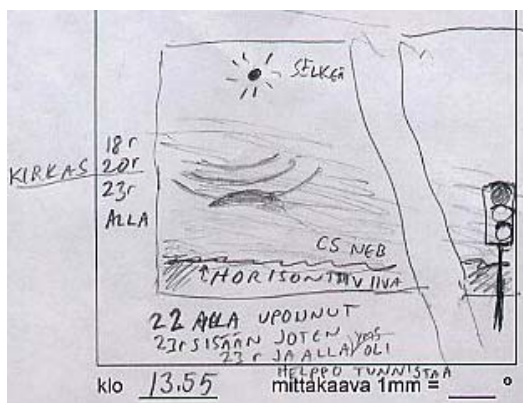 SELKEÄ
18r
KIRKAS 20r
23r
ALLA
CS NEB
HORISONTTIVIIVA
22 ALLA UPONNUT
23r SISÄÄN JOTEN
23 r JA ALLA OLI
HELPPO TUNNISTAA
klo 13.55 mittakaava 1mm = °